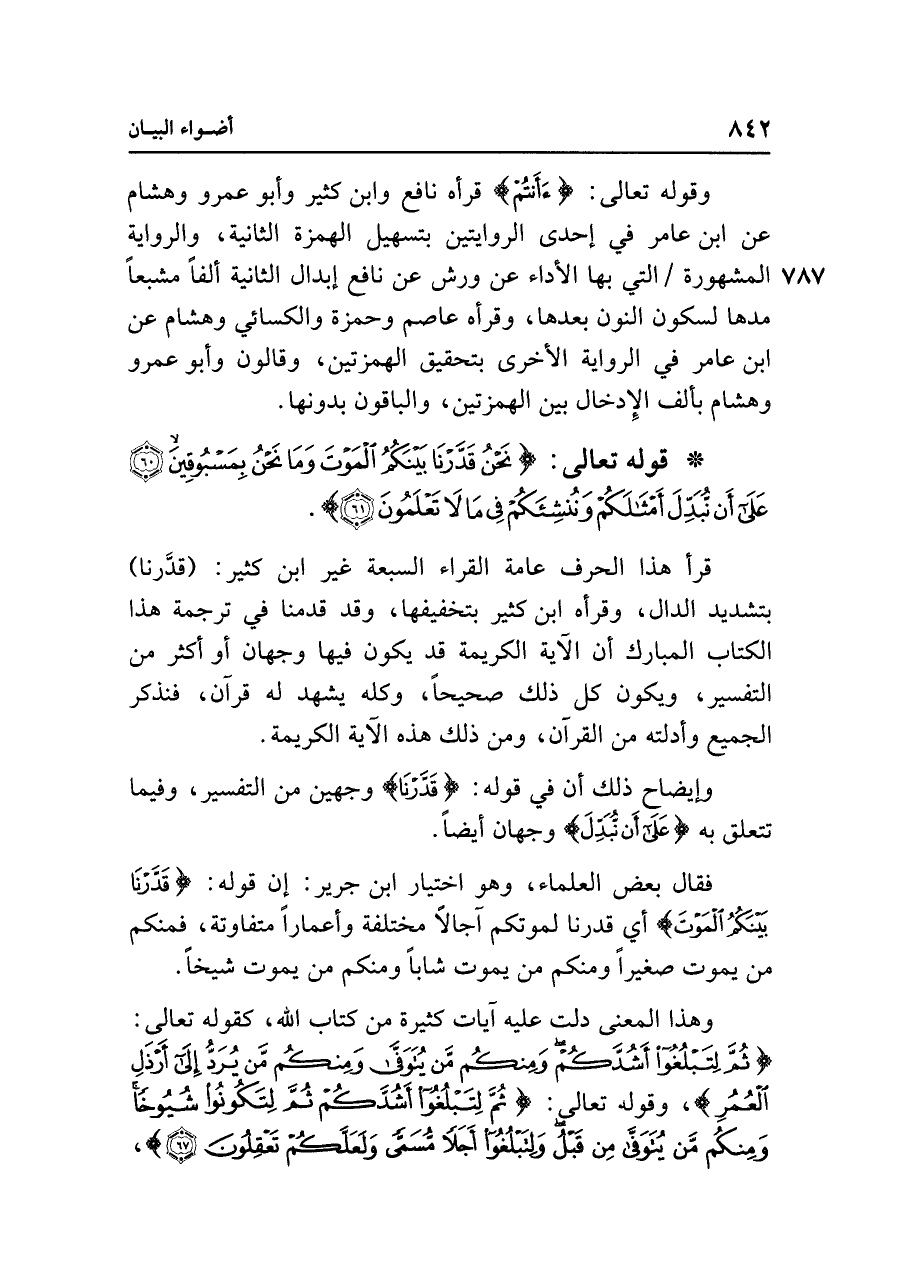 ٨٤٢ أضواء البيان
وقوله تعالى: ﴿ءَأَنتُمْ﴾ قرأه نافع وابن كثير وأبو عمرو وهشام
عن ابن عامر في إحدى الروايتين بتسهيل الهمزة الثانية، والرواية
٧٨٧ المشهورة / التي بها الأداء عن ورش عن نافع إبدال الثانية ألفاً مشبعاً
مدها لسكون النون بعدها، وقرأه عاصم وحمزة والكسائي وهشام عن
ابن عامر في الرواية الأخرى بتحقيق الهمزتين، وقالون وأبو عمرو
وهشام بألف الإِدخال بين الهمزتين، والباقون بدونها.
* قوله تعالى: ﴿نَحْنُ قَدَّرْنَا بَيْنَكُمُ ٱلْمَوْتَ وَمَا نَحْنُ بِمَسْبُوقِينَۙ ٦٠
عَلَىٰٓ أَن نُّبَدِّلَ أَمْثَٰلَكُمْ وَنُنشِئَكُمْ فِى مَا لَا تَعْلَمُونَ ٦١﴾.
قرأ هذا الحرف عامة القراء السبعة غير ابن كثير: (قدَّرنا)
بتشديد الدال، وقرأه ابن كثير بتخفيفها، وقد قدمنا في ترجمة هذا
الكتاب المبارك أن الآية الكريمة قد يكون فيها وجهان أو أكثر من
التفسير، ويكون كل ذلك صحيحاً، وكله يشهد له قرآن، فنذكر
الجميع وأدلته من القرآن، ومن ذلك هذه الآية الكريمة.
وإيضاح ذلك أن في قوله: ﴿قَدَّرْنَا﴾ وجهين من التفسير، وفيما
تتعلق به ﴿عَلَىٰٓ أَن نُّبَدِّلَ﴾ وجهان أيضاً.
فقال بعض العلماء، وهو اختيار ابن جرير: إن قوله: ﴿قَدَّرْنَا
بَيْنَكُمُ ٱلْمَوْتَ﴾ أي قدرنا لموتكم آجالاً مختلفة وأعماراً متفاوتة، فمنكم
من يموت صغيراً ومنكم من يموت شاباً ومنكم من يموت شيخاً.
وهذا المعنى دلت عليه آيات كثيرة من كتاب الله، كقوله تعالى:
﴿ثُمَّ لِتَبْلُغُوٓا۟ أَشُدَّكُمْۖ وَمِنكُم مَّن يُتَوَفَّىٰ وَمِنكُم مَّن يُرَدُّ إِلَىٰٓ أَرْذَلِ
ٱلْعُمُرِ﴾، وقوله تعالى: ﴿ثُمَّ لِتَبْلُغُوٓا۟ أَشُدَّكُمْ ثُمَّ لِتَكُونُوا۟ شُيُوخًاۚ
وَمِنكُم مَّن يُتَوَفَّىٰ مِن قَبْلُۖ وَلِتَبْلُغُوٓا۟ أَجَلًا مُّسَمًّى وَلَعَلَّكُمْ تَعْقِلُونَ ٦٧﴾،